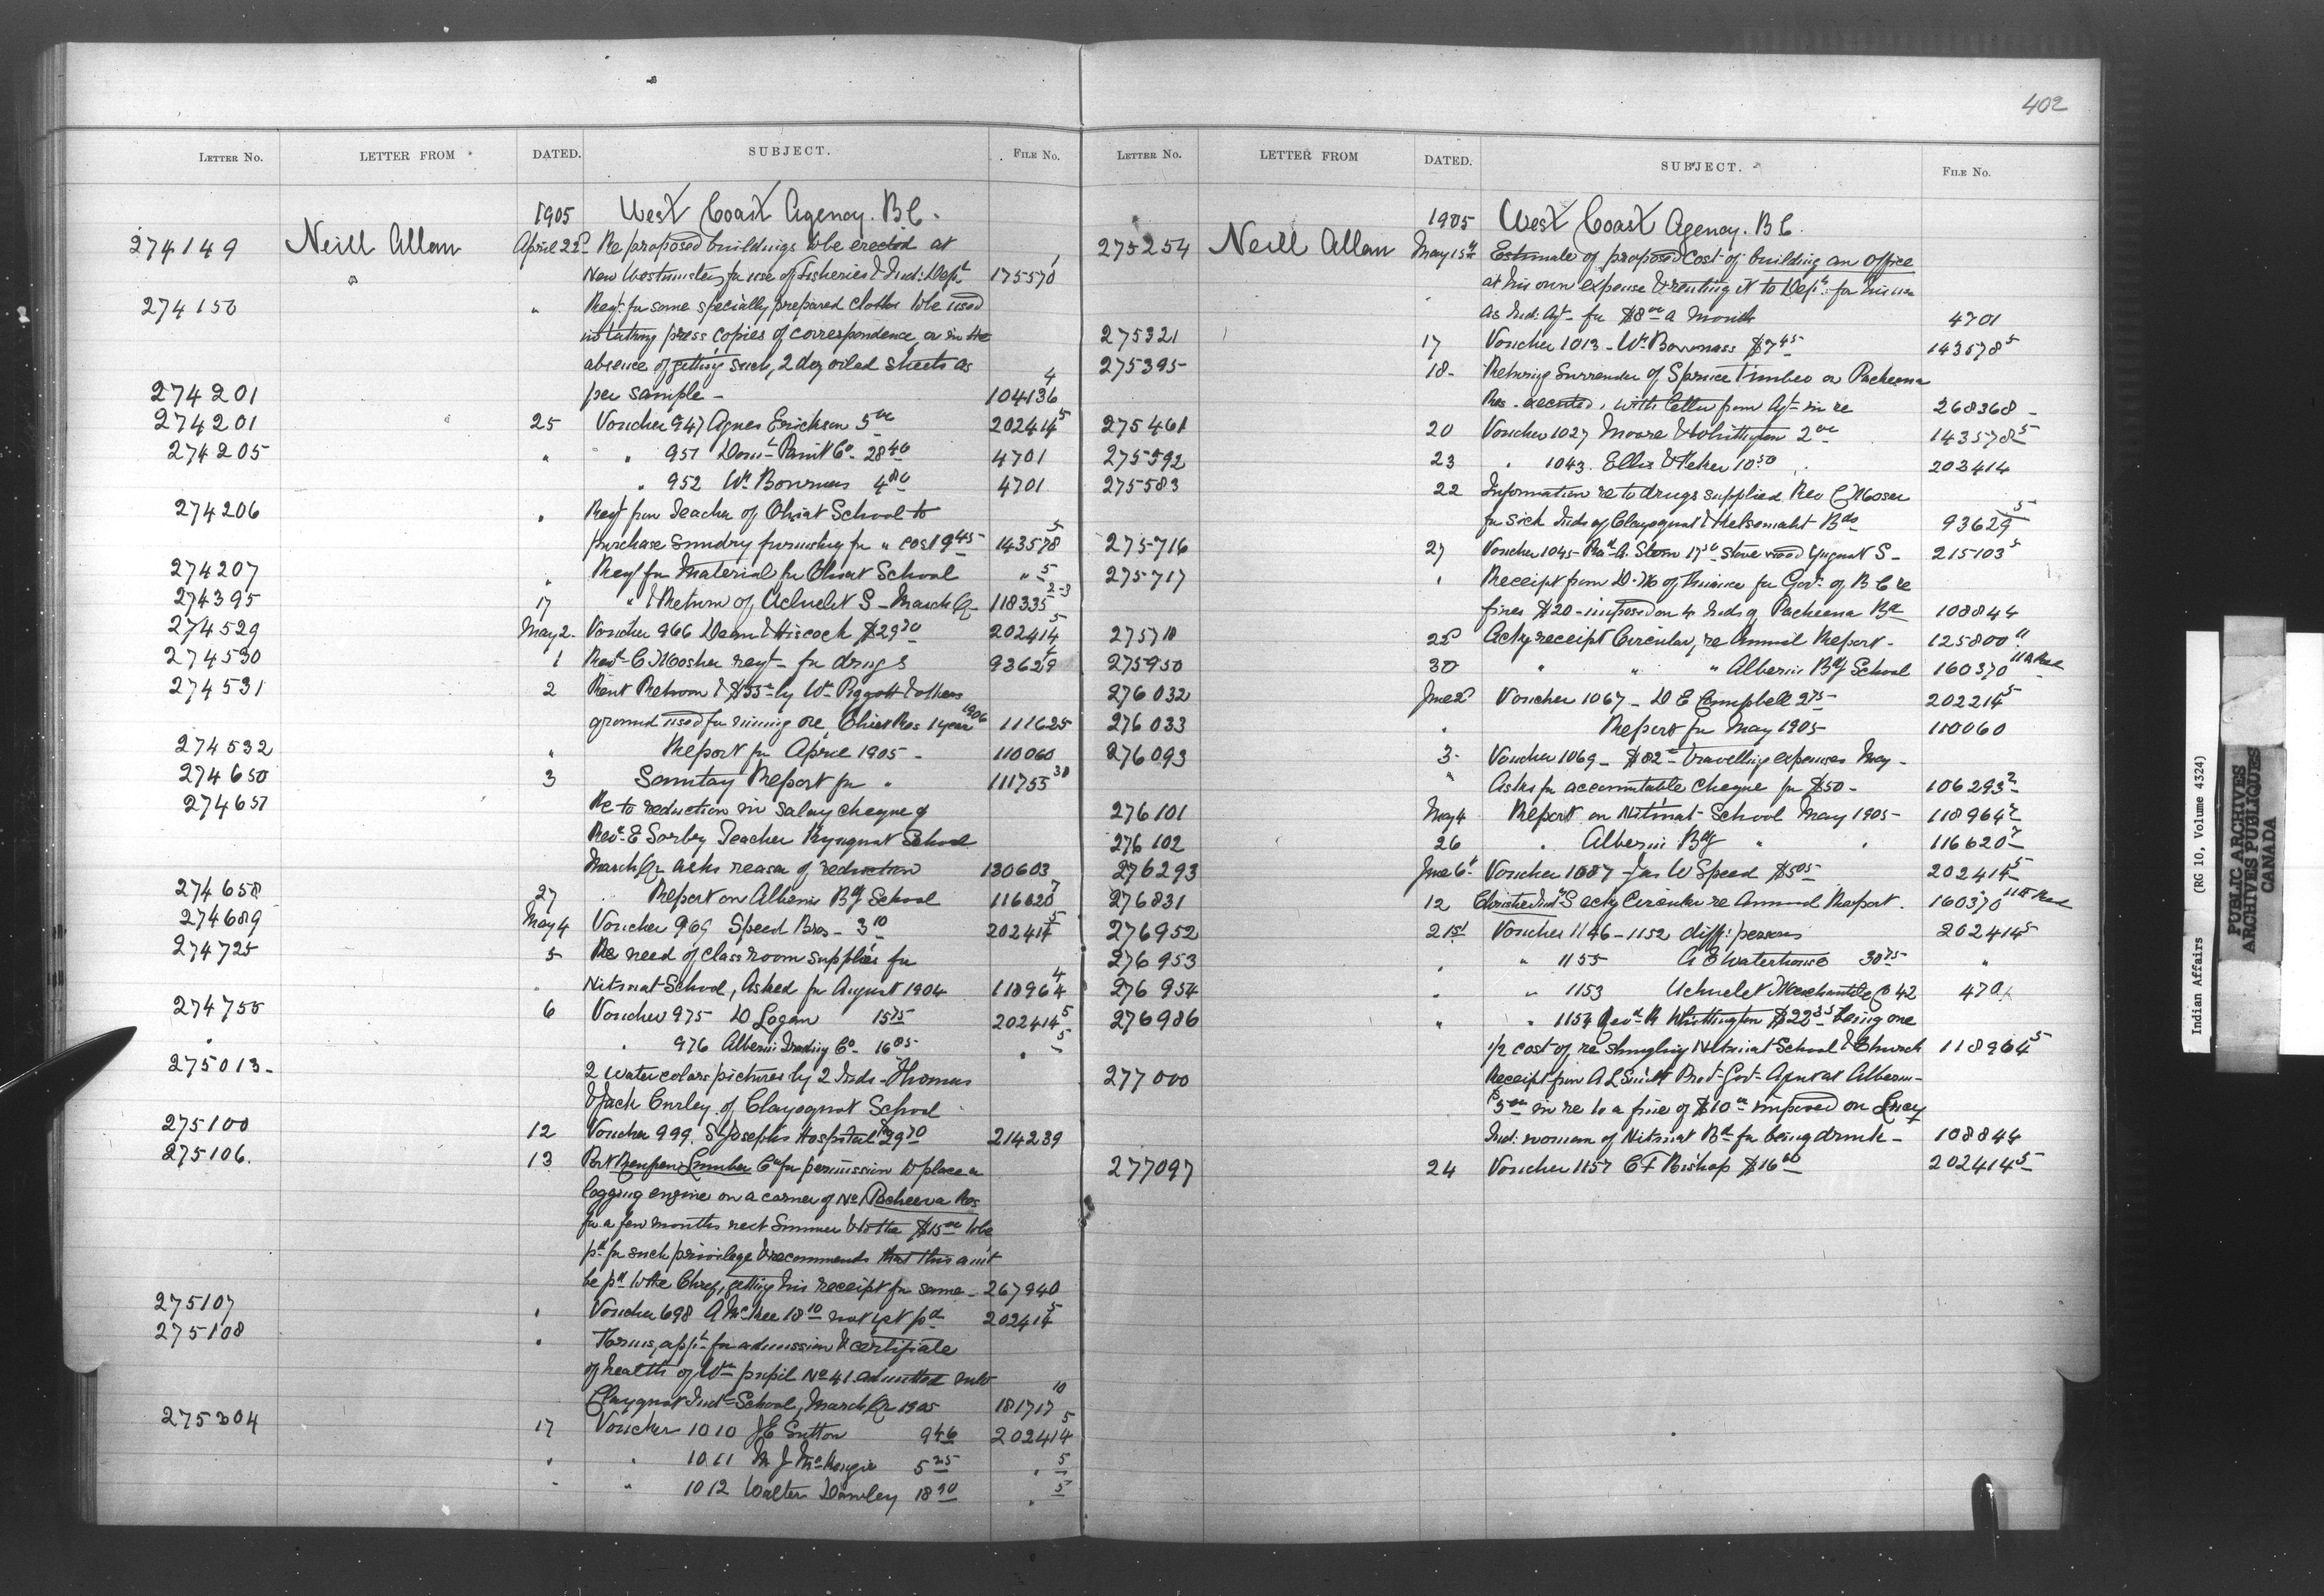 402
LETTER No. LETTER FROM DATED. SUBJECT. FILE No.
1905 West Coast Agency. B.C.
274149 Neill Allan April 22d Re proposed buildings to be erected at
New Westminster for use of Fisheries & Ind: Dept 175570 1
274150 " Reqt. for some specially prepared cloths to be used
in taking press copies of correspondence, or in the
absence of getting such, 2 doz oiled sheets as
274201 per sample - 104136 4
274201 25 Voucher 947 Agnes Erickson 5 00 202414 5
274205 " " 951 Dom: Paint Co. 28 40 4701
" 952 Wm Bowness 4 80 4701
274206 " Reqt from Teacher of Ohiat School to
purchase sundry furnishing for " cost 9 45 143578 5
274207 " Reqt for Material for Ohiat School " 5
274395 17 " & Return of Ucluelet S - March Qr 118335 2-3
274529 May 2 Voucher 966 Dean & Hiscock $29 70 202414 5
274530 1 Revd C Mosher reqt - for drugs 93629
274531 2 Rent Return & by Wm Piggott & others
ground used for mining ore, Ohiet Res 1 year 1906 111625
274532 " Report for April 1905 - 110060
274650 3 Sanitary Report for " 111755 30
274651 Re to reduction in salary cheque of
Revd E Sorby Teacher Kyuquot School
March Qr asks reason of reduction 130603
274658 27 Report on Alberni Bdg School 116620 7
274689 May 4 Voucher 969 Speed Bros - 3 10 202414 5
274725 5 Re need of class room supplies for
" Nitinat School, Asked for August 1904 118964 4
274755 6 Voucher 975 D Logan 15 75 202414 5
" " 976 Alberni Trading Co - 16 85 " 5
275013 - 2 Water colors pictures by 2 Inds - Thomas
& Jack Curley of Clayoquot School
275100 12 Voucher 999. St Josephs Hospital 29 70 214239
275106. 13 Port Renfrew Lumber Co for permission to place a
logging engine on a corner of No. Pacheena Res
for a few months next Summer & to the $15 00 to be
pd for such privilege & recommends that this amt
be pd to the Chief, getting his receipt for same - 267940
275107 " Voucher 698 A McKee 18 10 not yet pd 202414 5
275108 " Forms, appn for admission & certificate
of health of Wm pupil No 41 admitted into
Clayoquot Ind: School, March Qr 1905 181717 10
275304 17 Voucher 1010 J E Sutton 9 46 202414 5
" " 1011 M J McKenzie 5 25 " 5
" " 1012 Walter Dawley 18 90 " 5
LETTER No. LETTER FROM DATED. SUBJECT. FILE No.
1905 West Coast Agency. B C.
275254 Neill Allan May 15th Estimate of proposed cost of building an office
at his own expense & renting it to Dept. for his use
as Ind: Agt for $8 00 a month 4701
275321 17 Voucher 1013 - Wm Bowness $7 45 143578 5
275395 18 - Returning Surrender of Spruce Timber on Pacheena
Res. executed, with letter from Agt in re 268368 -
275461 20 Voucher 1027 Moore & Whittington 2 00 143578 5
275592 23 " 1043. Ellis & Keker 10 50 202414
275583 22 Information re to drugs supplied Rev C Moser
for sick Inds of Clayoquot & Kelsemaht Bds 93629 5
275716 27 Voucher 1045 - Revd A. Stern 17 50 stove wood Yuquot S - 215103 5
275717 " Receipt from D. M of Finance for Govt. of B C re
fines $20 - imposed on 4 Inds of Pacheena Bd 108844
275718 22d Ackg receipt Circular, re Annual Report - 125800 11
275950 30 " " " Alberni Bdg School 160370
276032 June 2d Voucher 1067 - D E Campbell 2 75 202214 5
276033 " Report for May 1905 110060
276093 3 - Voucher 1069 - $82 travelling expenses May -
" Asks for accountable cheque for $50 - 106293 2
276101 May 4 Report on Nitinat School May 1905 - 118964 2
276102 26 " Alberni Bdg " " 116620 7
276293 June 6t Voucher 1087 - Jas W Speed $5 05 202414 5
276831 12 Christie Ind S ackg Circular re Annual Report. 160370
276952 21st Voucher 1146 - 1152 diff: persons 202414 5
276953 " " 1155 A E Waterhouse 30 75 "
276954 " " 1153 Ucluelet Merchantile Co 42 4701
276986 " " 1154 Revd R Whittington $22 being one
1/2 cost of re shingling Nitinat School & Church 118964 5
277000 Receipt from A L Smith Prov: Govt Agent at Alberni -
$5 00 in re to a fine of $10 00 imposed on Lucy
Ind: woman of Nitinat Bd for being drunk - 108844
277097 24 Voucher 1157 C F Bishop $16 60 202414 5
Indian Affairs (RG 10, Volume 4324)
PUBLIC ARCHIVES
ARCHIVES PUBLIQUES
CANADA